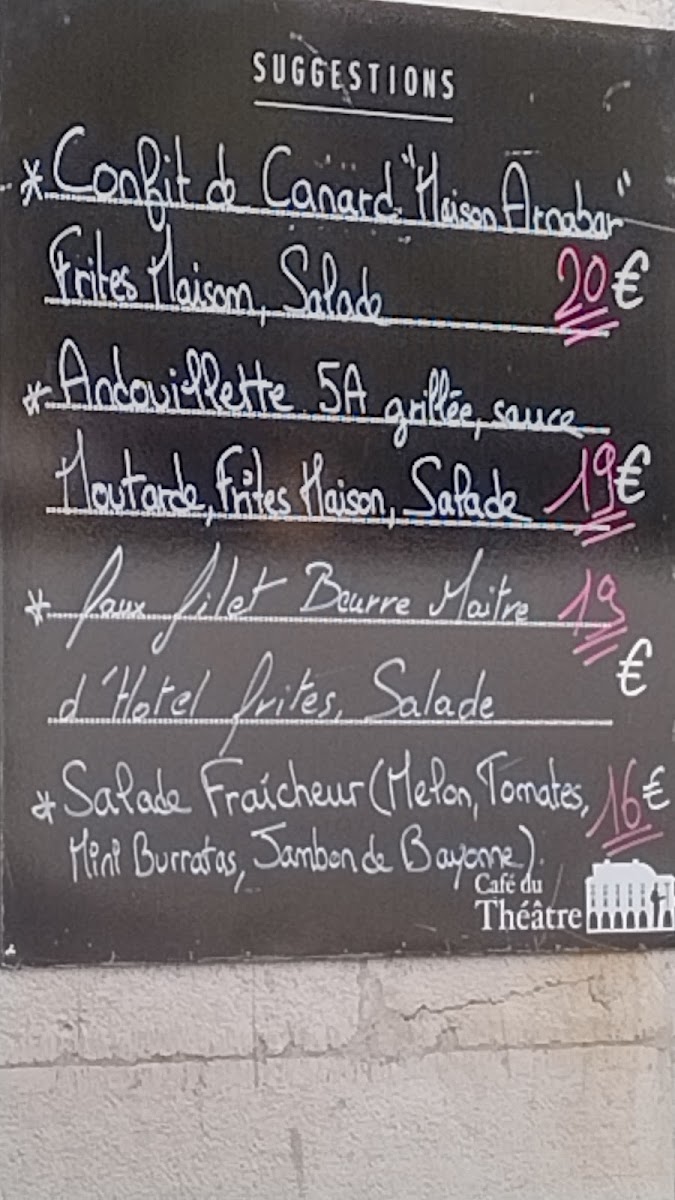 SUGGESTIONS
* Confit de Canard "Maison Arnabar"
Frites Maison, Salade 20 €
* Andouillette 5A grillée, sauce
Moutarde, Frites Maison, Salade 19 €
* faux filet Beurre Maitre 19
€
d'Hotel frites, Salade
* Salade Fraîcheur (Melon, Tomates, 16 €
Mini Burratas, Jambon de Bayonne).
Café du
Théâtre